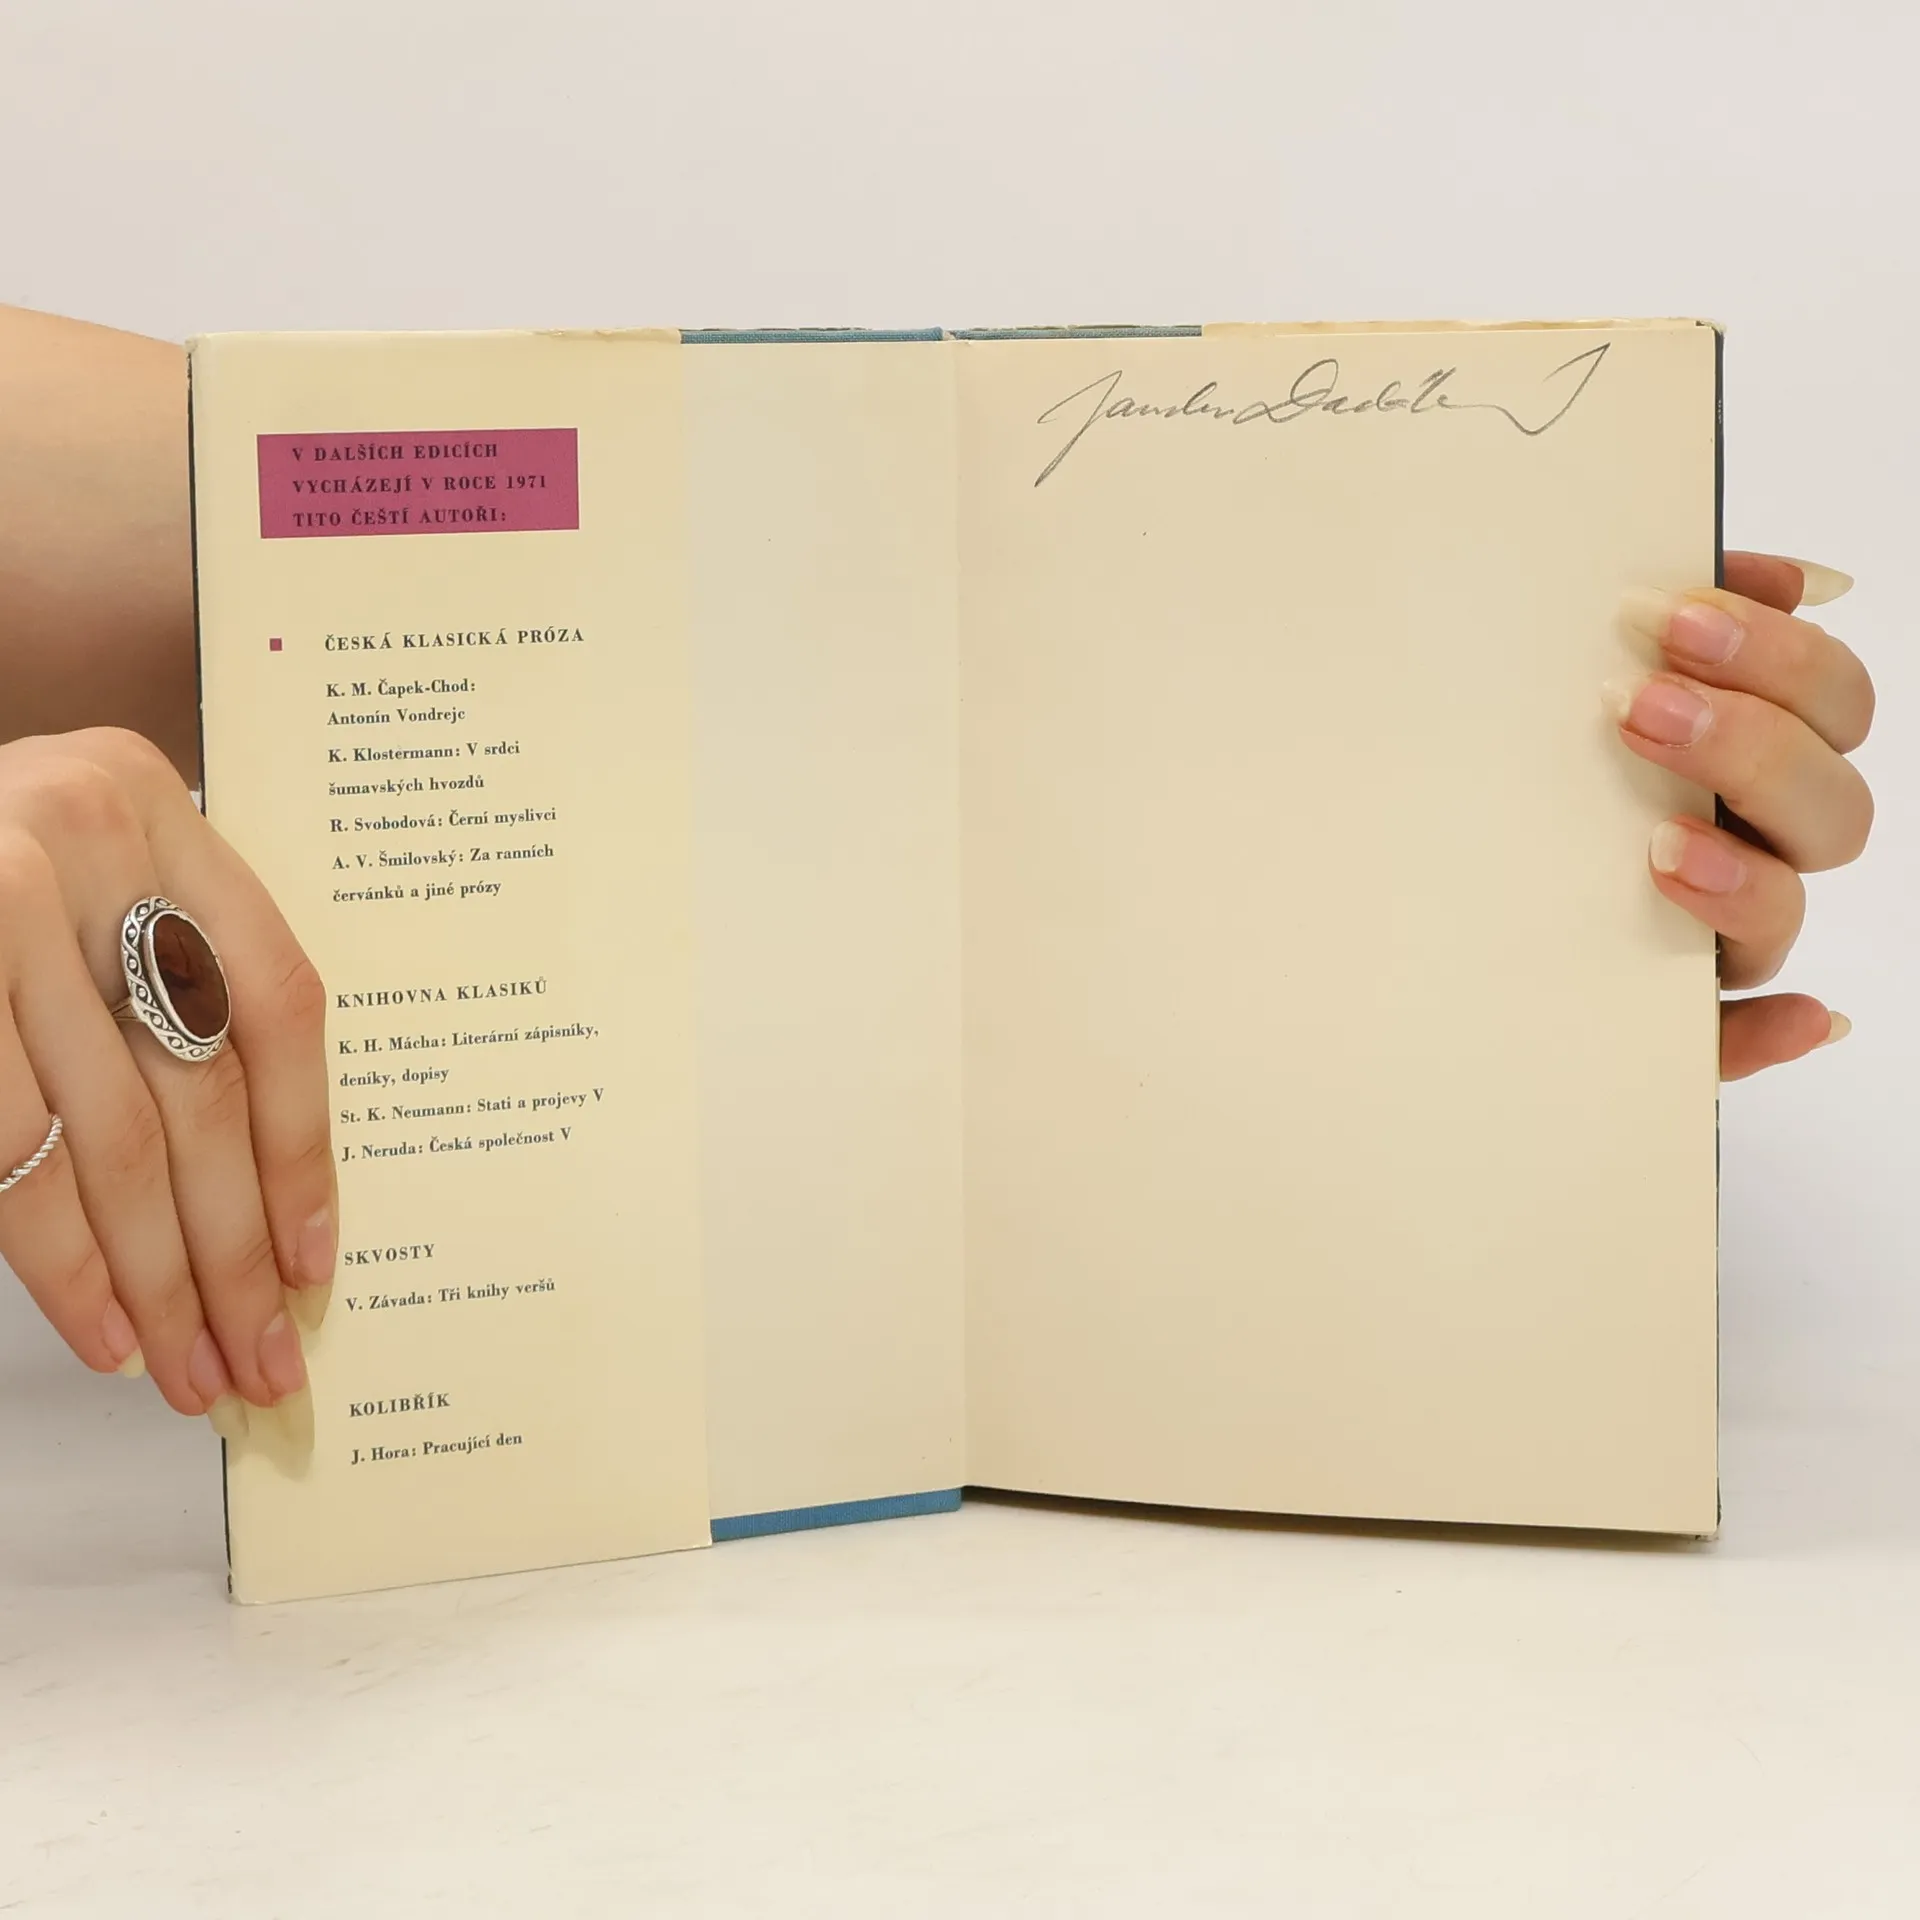 V DALŠÍCH EDICÍCH
VYCHÁZEJÍ V ROCE 1971
TITO ČEŠTÍ AUTOŘI:
ČESKÁ KLASICKÁ PRÓZA
K. M. Čapek-Chod:
Antonín Vondrejc
K. Klostermann: V srdci
šumavských hvozdů
R. Svobodová: Černí myslivci
A. V. Šmilovský: Za ranních
červánků a jiné prózy
KNIHOVNA KLASIKŮ
K. H. Mácha: Literární zápisníky,
deníky, dopisy
St. K. Neumann: Stati a projevy V
J. Neruda: Česká společnost V
SKVOSTY
V. Závada: Tři knihy veršů
KOLIBŘÍK
J. Hora: Pracující den